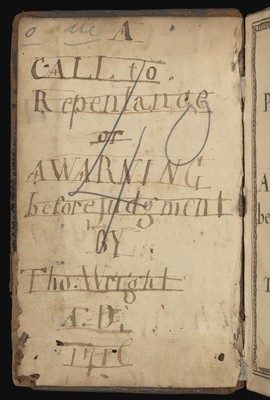 A
CALL to
Repentance
or
AWARNING
before Judgment
BY
Tho. Wright
A.D.